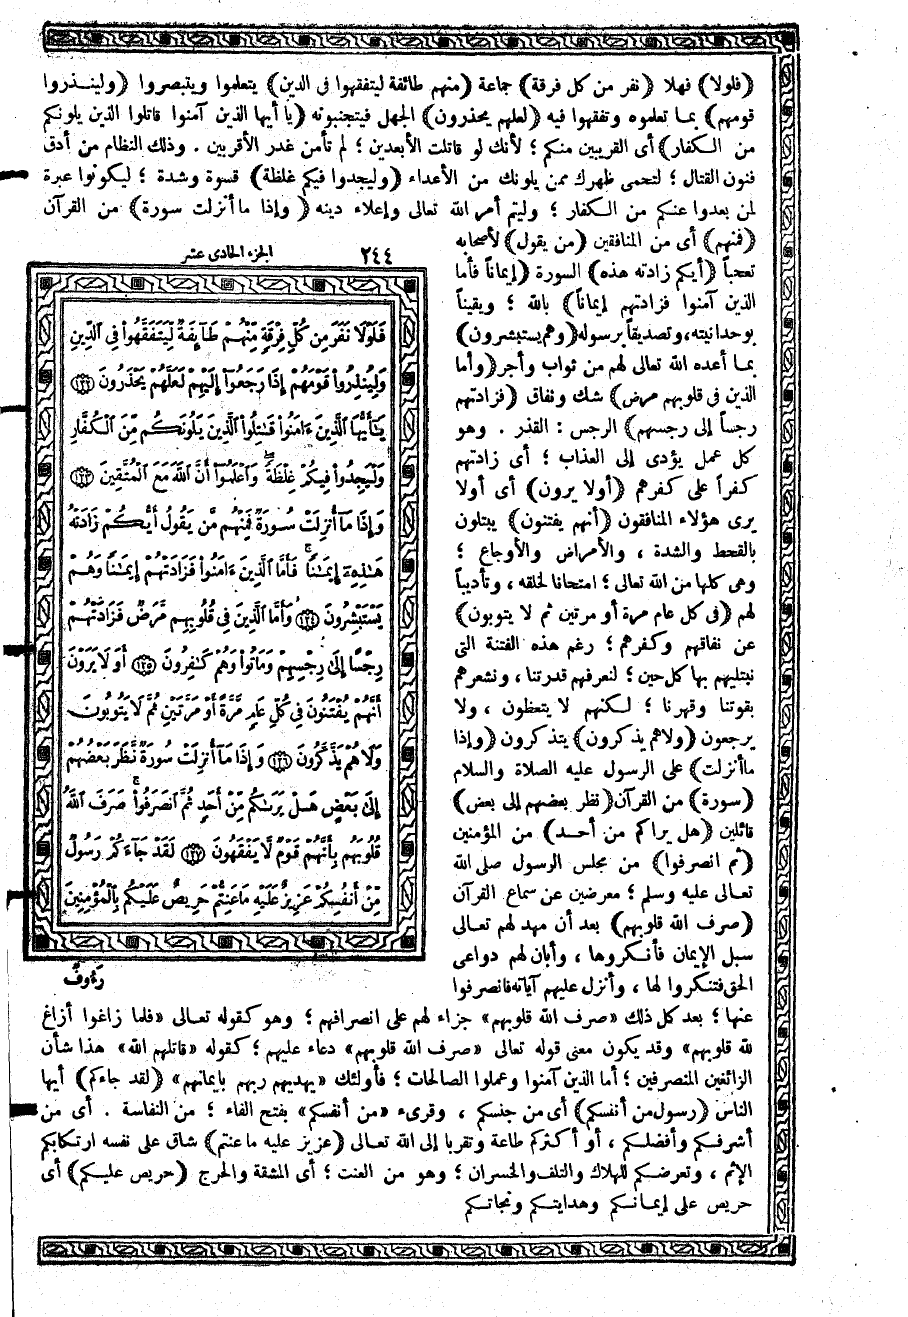 (فلولا) فهلا (نفر من كل فرقة) جماعة (منهم طائفة ليتفقهوا فى الدين) يتعلموا ويتبصروا (ولينـذروا
قومهم) بما تعلموه وتفقهوا فيه (لعلهم يحذرون) الجهل فيتجنبونه (يا أيها الذين آمنوا قاتلوا الذين يلونكم
من الكفار) أى القريبين منكم ؛ لأنك لو قاتلت الأبعدين ؛ لم تأمن غدر الأقربين . وذلك النظام من أدق
فنون القتال ؛ لتحمى ظهرك ممن يلونك من الأعداء (وليجدوا فيكم غلظة) قسوة وشدة ؛ ليكونوا عبرة
لمن بعدوا عنكم من الكفار ؛ وليتم أمر الله تعالى وإعلاء دينه (وإذا ما أنزلت سورة) من القرآن
(فمنهم) أى من المنافقين (من يقول) لأصحابه
تعجباً (أيكم زادته هذه) السورة (إيماناً فأما
الذين آمنوا فزادتهم إيماناً) بالله ؛ ويقيناً
بوحدانيته، وتصديقاً برسوله (وهم يستبشرون)
بما أعده الله تعالى لهم من ثواب وأجر (وأما
الذين فى قلوبهم مرض) شك ونفاق (فزادتهم
رجساً إلى رجسهم) الرجس : القذر . وهو
كل عمل يؤدى إلى العذاب ؛ أى زادتهم
كفراً على كفرهم (أولا يرون) أى أولا
يرى هؤلاء المنافقون (أنهم يفتنون) يبتلون
بالقحط والشدة ، والأمراض والأوجاع ؛
وهى كلها من الله تعالى ؛ امتحانا لخلقه ، وتأديباً
لهم (فى كل عام مرة أو مرتين ثم لا يتوبون)
عن نفاقهم وكفرهم ؛ رغم هذه الفتنة التى
نبتليهم بها كل حين ؛ لنعرفهم قدرتنا ، ونشعرهم
بقوتنا وقهرنا ؛ لكنهم لا يتعظون ، ولا
يرجعون (ولا هم يذكرون) يتذكرون (وإذا
ما أنزلت) على الرسول عليه الصلاة والسلام
(سورة) من القرآن (نظر بعضهم إلى بعض)
قائلين (هل يراكم من أحـد) من المؤمنين
(ثم انصرفوا) من مجلس الرسول صلى الله
تعالى عليه وسلم ؛ معرضين عن سماع القرآن
(صرف الله قلوبهم) بعد أن مهد لهم تعالى
سبل الإيمان فأنكروها ، وأبان لهم دواعى
الحق فتنكروا لها ، وأنزل عليهم آياته فانصرفوا
٢٤٤ الجزء الحادى عشر
فَلَوْلَا نَفَرَ مِن كُلِّ فِرْقَةٍ مِّنْهُمْ طَآئِفَةٌ لِّيَتَفَقَّهُوا۟ فِى ٱلدِّينِ
وَلِيُنذِرُوا۟ قَوْمَهُمْ إِذَا رَجَعُوٓا۟ إِلَيْهِمْ لَعَلَّهُمْ يَحْذَرُونَ ﴿١٢٢﴾
يَـٰٓأَيُّهَا ٱلَّذِينَ ءَامَنُوا۟ قَـٰتِلُوا۟ ٱلَّذِينَ يَلُونَكُم مِّنَ ٱلْكُفَّارِ
وَلْيَجِدُوا۟ فِيكُمْ غِلْظَةً وَٱعْلَمُوٓا۟ أَنَّ ٱللَّهَ مَعَ ٱلْمُتَّقِينَ ﴿١٢٣﴾
وَإِذَا مَآ أُنزِلَتْ سُورَةٌ فَمِنْهُم مَّن يَقُولُ أَيُّكُمْ زَادَتْهُ
هَـٰذِهِۦٓ إِيمَـٰنًا فَأَمَّا ٱلَّذِينَ ءَامَنُوا۟ فَزَادَتْهُمْ إِيمَـٰنًا وَهُمْ
يَسْتَبْشِرُونَ ﴿١٢٤﴾ وَأَمَّا ٱلَّذِينَ فِى قُلُوبِهِم مَّرَضٌ فَزَادَتْهُمْ
رِجْسًا إِلَىٰ رِجْسِهِمْ وَمَاتُوا۟ وَهُمْ كَـٰفِرُونَ ﴿١٢٥﴾ أَوَلَا يَرَوْنَ
أَنَّهُمْ يُفْتَنُونَ فِى كُلِّ عَامٍ مَّرَّةً أَوْ مَرَّتَيْنِ ثُمَّ لَا يَتُوبُونَ
وَلَا هُمْ يَذَّكَّرُونَ ﴿١٢٦﴾ وَإِذَا مَآ أُنزِلَتْ سُورَةٌ نَّظَرَ بَعْضُهُمْ
إِلَىٰ بَعْضٍ هَلْ يَرَىٰكُم مِّنْ أَحَدٍ ثُمَّ ٱنصَرَفُوا۟ صَرَفَ ٱللَّهُ
قُلُوبَهُم بِأَنَّهُمْ قَوْمٌ لَّا يَفْقَهُونَ ﴿١٢٧﴾ لَقَدْ جَآءَكُمْ رَسُولٌ
مِّنْ أَنفُسِكُمْ عَزِيزٌ عَلَيْهِ مَا عَنِتُّمْ حَرِيصٌ عَلَيْكُم بِٱلْمُؤْمِنِينَ
رَءُوفٌ
عنها ؛ بعد كل ذلك «صرف الله قلوبهم» جزاء لهم على انصرافهم ؛ وهو كقوله تعالى «فلما زاغوا أزاغ
لله قلوبهم» وقد يكون معنى قوله تعالى «صرف الله قلوبهم» دعاء عليهم ؛ كقوله «قاتلهم الله» هذا شأن
الزائغين المنصرفين ؛ أما الذين آمنوا وعملوا الصالحات ؛ فأولئك «يهديهم ربهم بإيمانهم» (لقد جاءكم) أيها
الناس (رسول من أنفسكم) أى من جنسكم ، وقرىء «من أنفسكم» بفتح الفاء ؛ من النفاسة . أى من
أشرفكم وأفضلكم ، أو أكثركم طاعة وتقربا إلى الله تعـالى (عزيز عليه ما عنتم) شاق على نفسه ارتكابكم
الإثم ، وتعرضكم للهلاك والتلف والخسران ؛ وهو من العنت ؛ أى المشقة والحرج (حريص عليكم) أى
حريص على إيمانكم وهدايتكم ونجاتكم